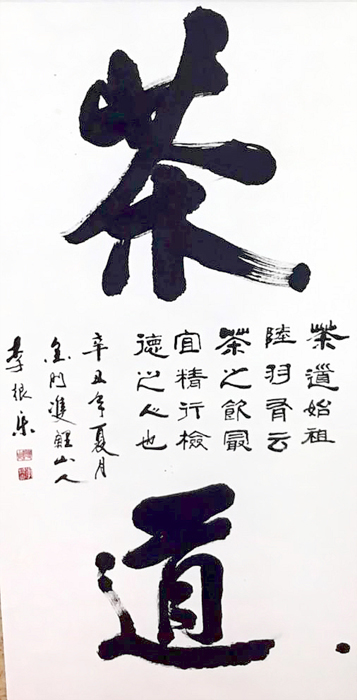 茶
道
茶道始祖
陸羽有云
茶之飲最
宜精行檢
德之人也
辛丑年夏月
金門雙鯉山人
李根乐